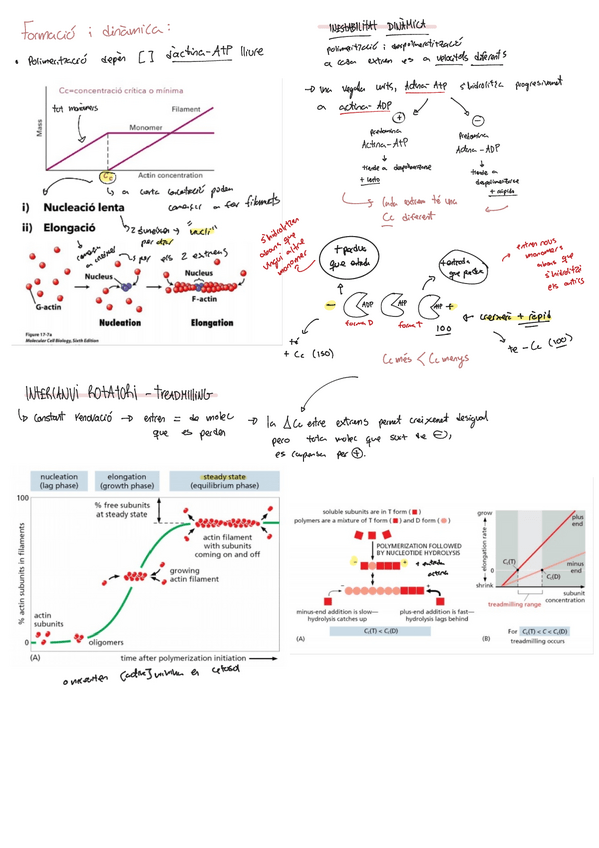 Formació i dinàmica:
• Polimerització depèn [ ] d'actina-ATP lliure
Cc=concentració crítica o mínima
tot monòmers
Filament
Monomer
Mass
Cc
Actin concentration
a certa concentració poden
començar a fer filaments
i) Nucleació lenta
ii) Elongació
per els 2 extrems
G-actin
Nucleus
Nucleation
Nucleus
F-actin
Elongation
Figure 17-7a
Molecular Cell Biology, Sixth Edition
INESTABILITAT DINÀMICA
polimerització i despolimerització
a cada extrem es a velocitats diferents
→ una vegada units, Actina-ATP s'hidrolitza progressivament
a actina-ADP
+
predomina
Actina-ATP
↓
tendeix a despolimeritzar
+ lento
−
Predomina
Actina-ADP
↓
tendeix a
despolimeritzar
+ ràpid
Cada extrem té una
Cc diferent
s'hidrolitzen
abans que
vingui altre
monomer
+ perdua
que entrada
+ entrada
que perdua
entren nous
monomers
abans que
s'hidrolitzi
els antics
−
ADP
ATP
+
forma D
forma T
100
creixerà + ràpid
té
+ Cc (150)
té − Cc (100)
Cc més < Cc menys
INTERCANVI ROTATORI - TREADMILLING
↳ Constant renovació → entren = de molec
que es perden
→ la ΔCc entre extrems permet creixement desigual
pero tota molec que surt de ⊖,
es compensa per ⊕.
nucleation
(lag phase)
elongation
(growth phase)
steady state
(equilibrium phase)
100
% free subunits
at steady state
actin filament
with subunits
coming on and off
growing
actin filament
% actin subunits in filaments
actin
subunits
oligomers
0
(A)
time after polymerization initiation
[actina] mínima en citosol
soluble subunits are in T form ( )
polymers are a mixture of T form ( ) and D form ( )
POLYMERIZATION FOLLOWED
BY NUCLEOTIDE HYDROLYSIS
+ entrada
actina
minus-end addition is slow—
hydrolysis catches up
plus-end addition is fast—
hydrolysis lags behind
(A)
Cc(T) < Cc(D)
grow
plus
end
elongation rate
Cc(T)
minus
end
0
Cc(D)
shrink
subunit
concentration
treadmilling range
(B)
For Cc(T) < C < Cc(D)
treadmilling occurs